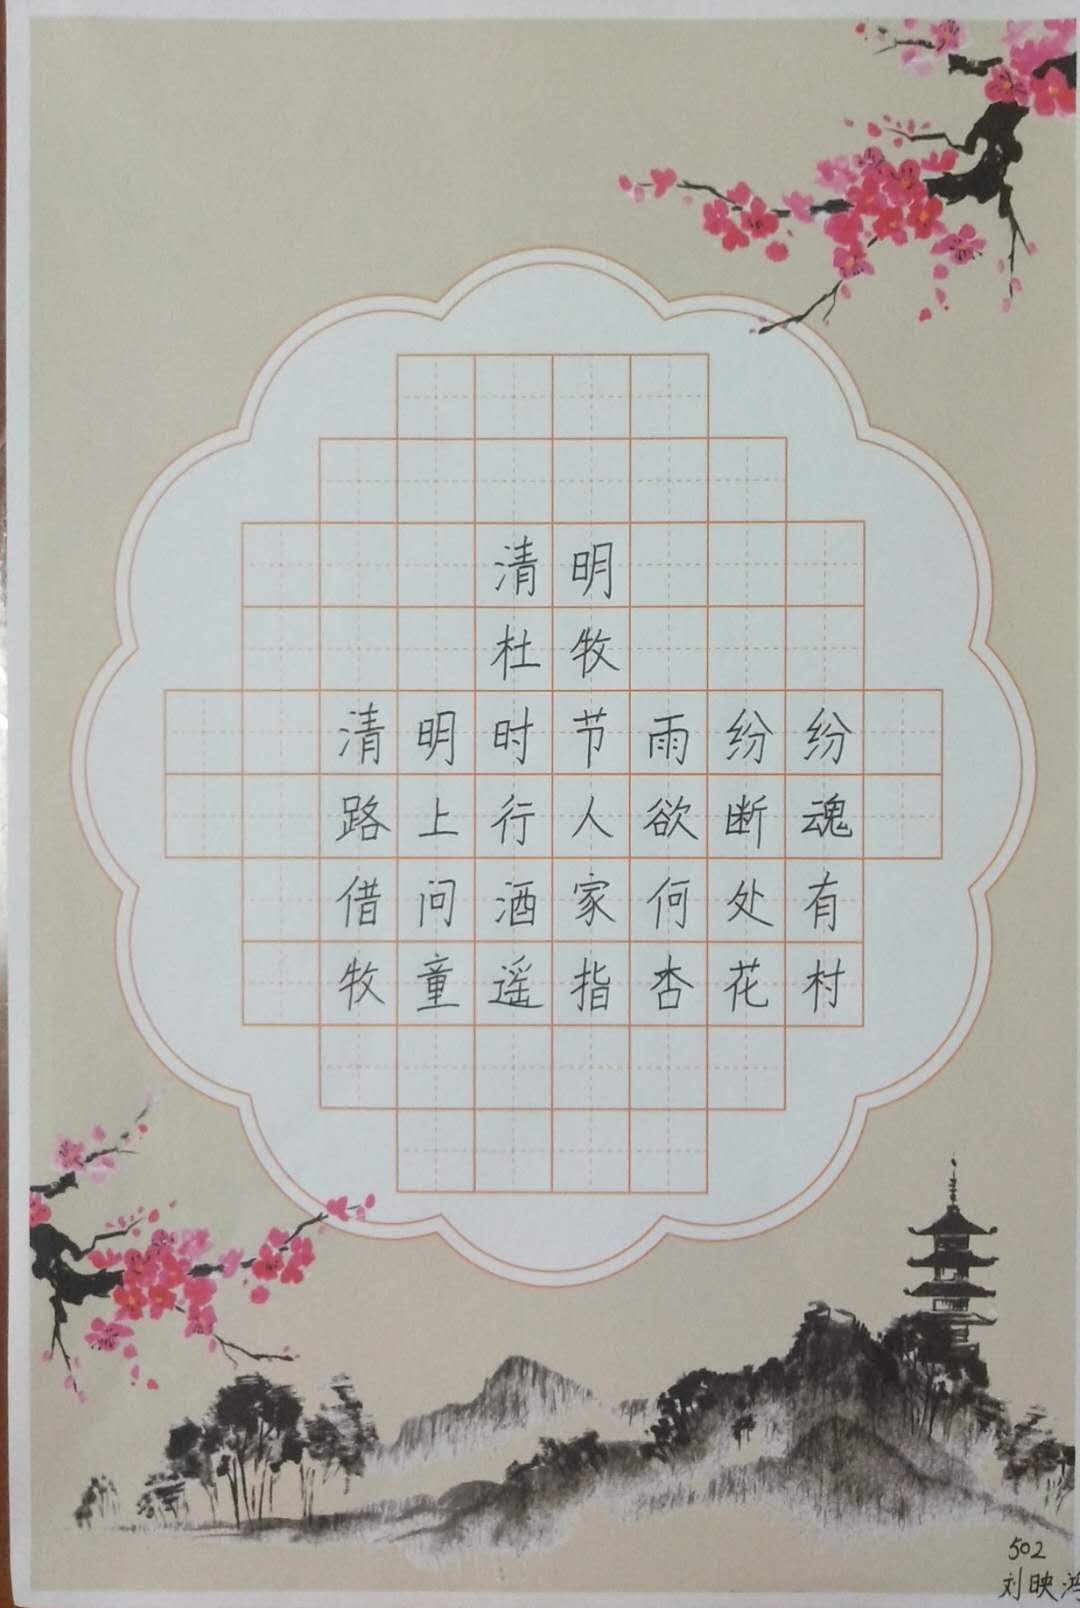 清明
杜牧
清明时节雨纷纷
路上行人欲断魂
借问酒家何处有
牧童遥指杏花村
502
刘映鸿